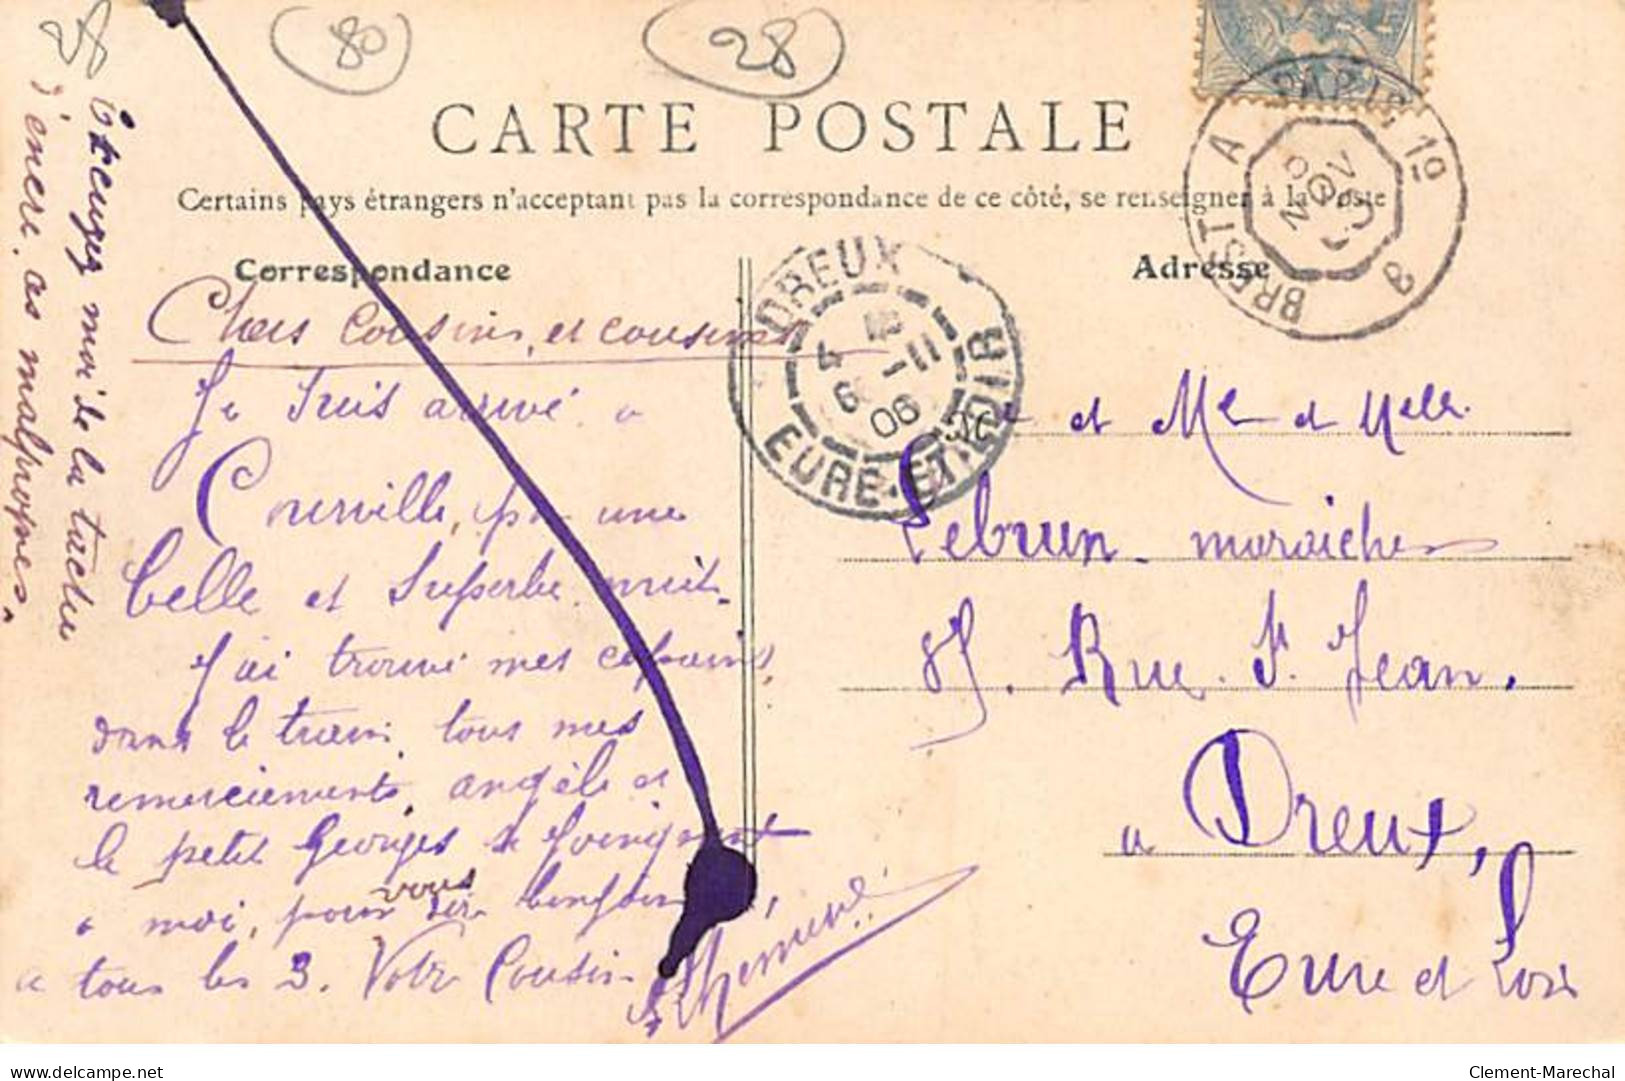 80
28
CARTE POSTALE
Certains pays étrangers n'acceptant pas la correspondance de ce côté, se renseigner à la Poste
Correspondance
Chers cousins, et cousine
Je suis arrivé a
Courville, par une
belle et superbe nuit
J'ai trouvé mes copains,
dans le train, tous mes
remerciements, angèle et
le petit Georges se joingnent
a moi, pour vous dire bonjour
a tous les 3. Votre Cousin
Excusez moi de la tache
d'encre. as malpropres.
28
DREUX
4 -11
06
EURE-ET-LOIR
BREST A PARIS 1º
NOV
B
Adresse
et Me et Melle
Lebrun maraicher
85. Rue St Jean.
a Dreux,
Eure et Loir
delcampe.net
Clement-Marechal